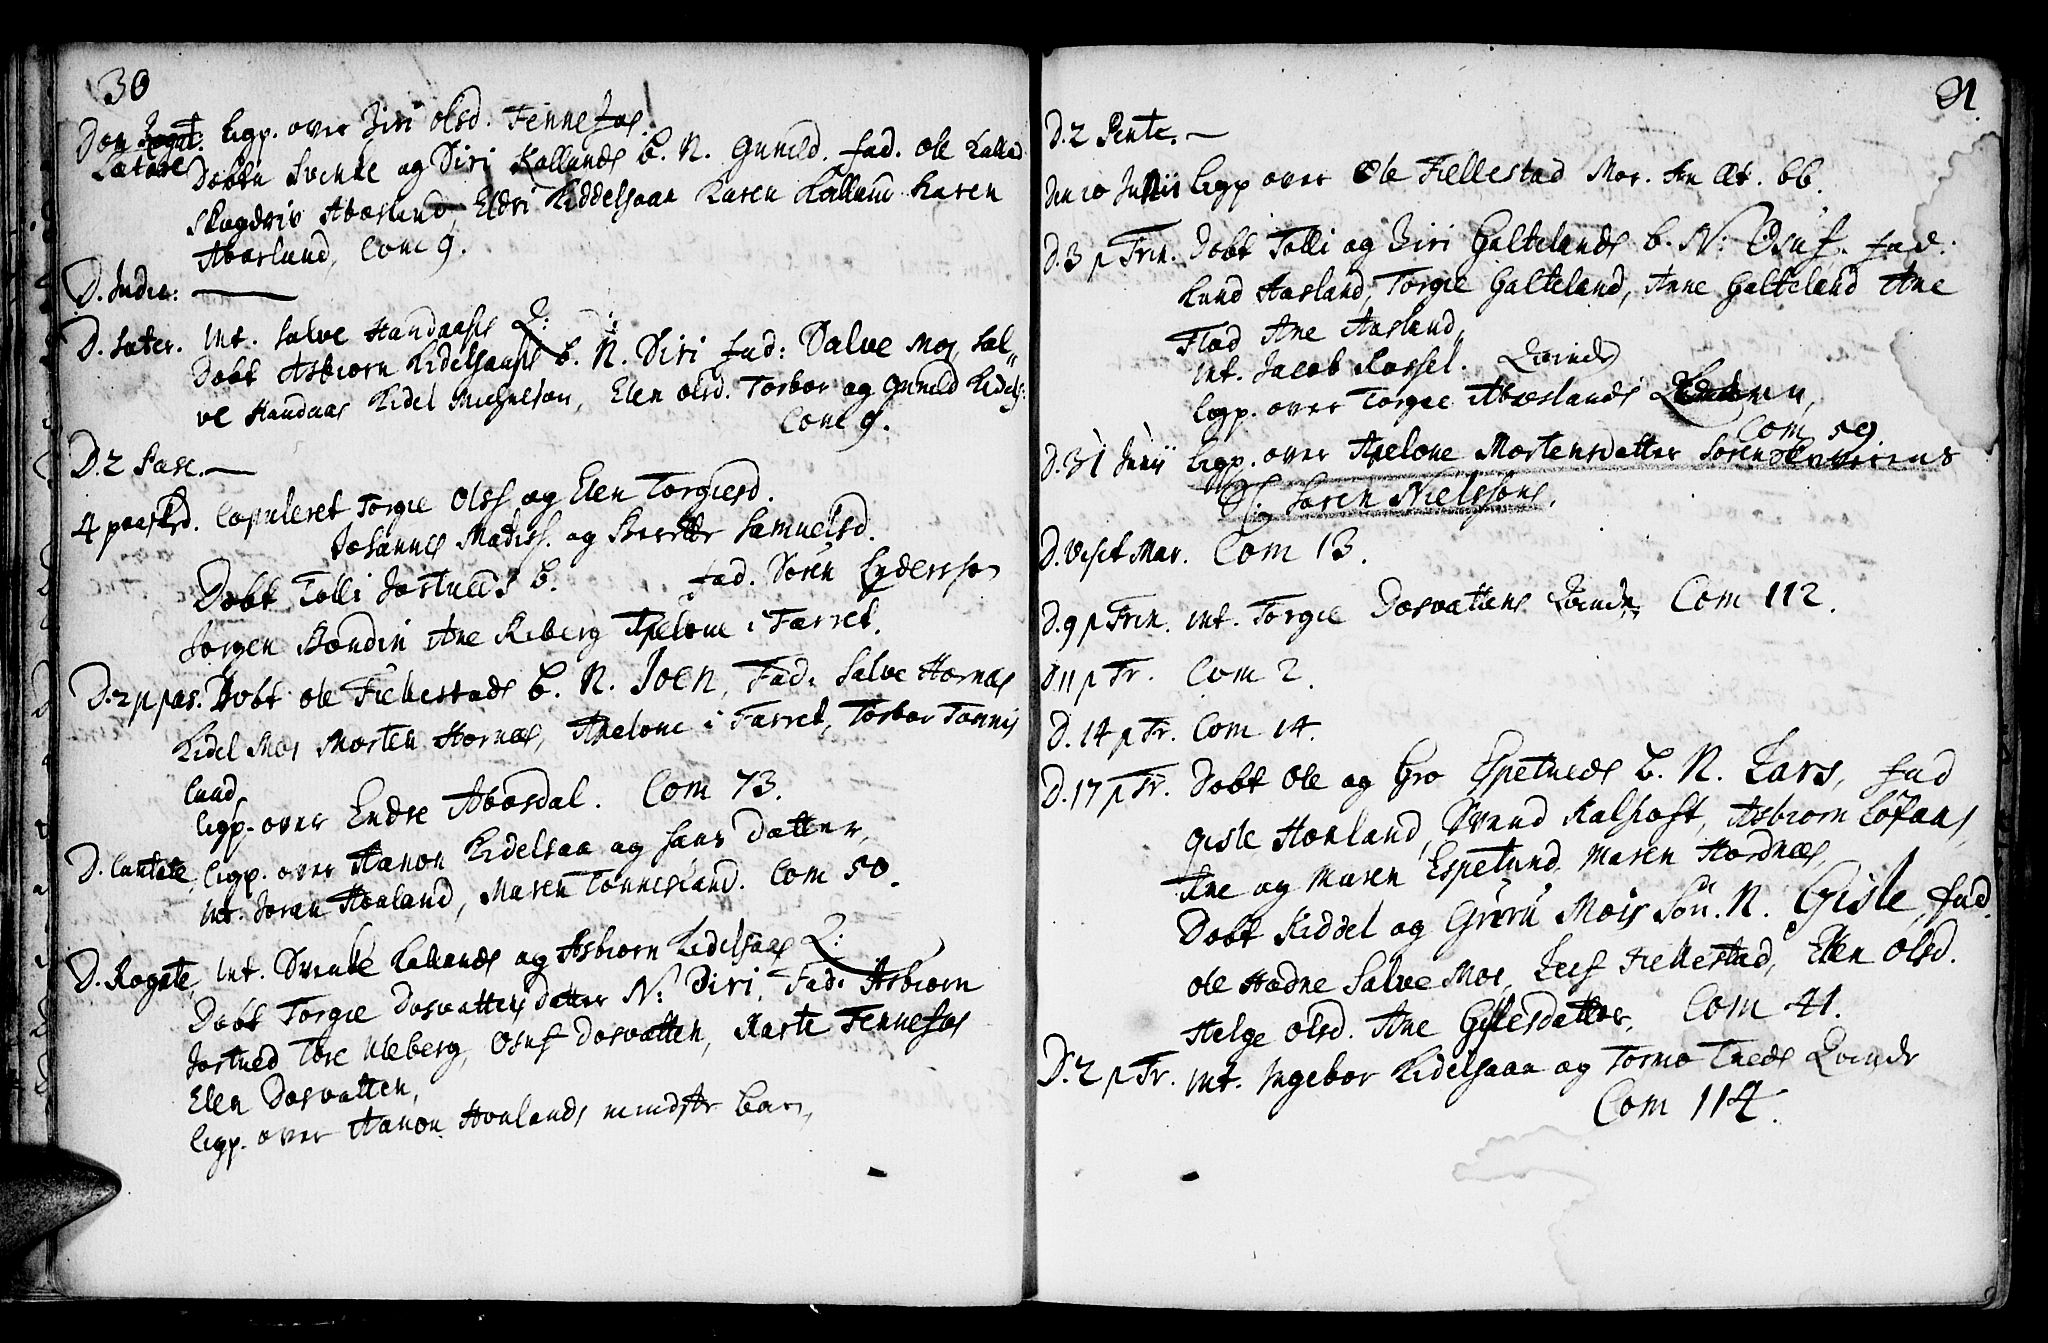 30
Dom Rogat: ligp. over Siri Olsd. Fennefos.
Lætare Døbt Svenke og Siri Kallands b. N. Gunild. fad. Ole Kalland
Skogdriv Abusland, Eldri Kiddelsaaa Karen Kalland Karen
Abusland, Com 9.
D. Judic:
D. Sater. Int. Salve Handaasis Q:
Døbt Asbiørn Kidelsaas b. N. Siri fad: Salve Moe, Sal„
ve Handaas Kidel Michelsøn, Elen Olsd. Torbor og Gunild Kidels:
Com 9.
D. 2 Pasc.
4 paaskd. Copuleret Torgie Olss og Elen Torgiesd.
Johannes Madiss. og Berette Samuelsd.
Døbt Tolli Jortueds b. fad. Søren Lyderssøn
Jørgen Mandin Ane Reberg Apelone i Færret.
D. 2 p pas. Døbt Ole Fiellestads b. N. Joen, Fad: Salve Hornæs
Kidel Moe Morten Hornæs, Apelone i Færret, Torbor Tønnis
lund
ligp. over Endre Abusdal. Com 73.
D. Cantate, ligp. over Aanon Kidelsaa og hans datter,
Int. Joran Honland, Maren Tønnesland. Com 50.
D. Rogate, Int. Svenke Kallands og Asbiørn Kidelsaas Q:
Døbt Torgie Dosvattens datter N: Siri, Fad: Asbiørn
Jortued Tore Uleberg, Osuf Dosvatten, Marte Fennefos
Elen Dosvatten,
ligp. over Aanon Honlands mindste barn,
31
D. 2 Pente.
Den 10 Junii ligp over Ole Fiellestad Mor. An Æt. 66.
D. 3 p Trin. Døbt Tolli og Siri Galtelands b. N: Osuf. fad:
Knud Aasland, Torgie Galteland, Anne Galteland Ane
Flad Ane Aasland,
Int. Jacob Rossel. Qvinde
ligp. over Torgie Abuslands
Com 59
D. 31 Junii ligp. over Apelone Mortensdatter Søren
Sl. Søren Nielssøns,
D. Visit Mar. Com 13.
D. 9 p Trin. Int. Torgie Dosvattens Qvinde, Com 112.
D 11 p Tr. Com 2.
D. 14 p Tr. Com 14.
D. 17 p Tr. Døbt Ole og Gro Espetueds b. N. Lars, fad
Gisle Honland, Svend Kalhoft, Asbiørn Løfaas,
Ane og Maren Espetund, Maren Hordnæs,
Døbt Kiddel og Grøru Mois Søn. N. Gisle, fad.
Ole Hodne Salve Moe, Leif Fiellestad, Elen Olsd.
Helge Olsd. Ane Gislesdatter, Com 41.
D. 2 p Tr. Int. Ingebor Kidelsaaa og Tormo Tueds Qvinde
Com 114.